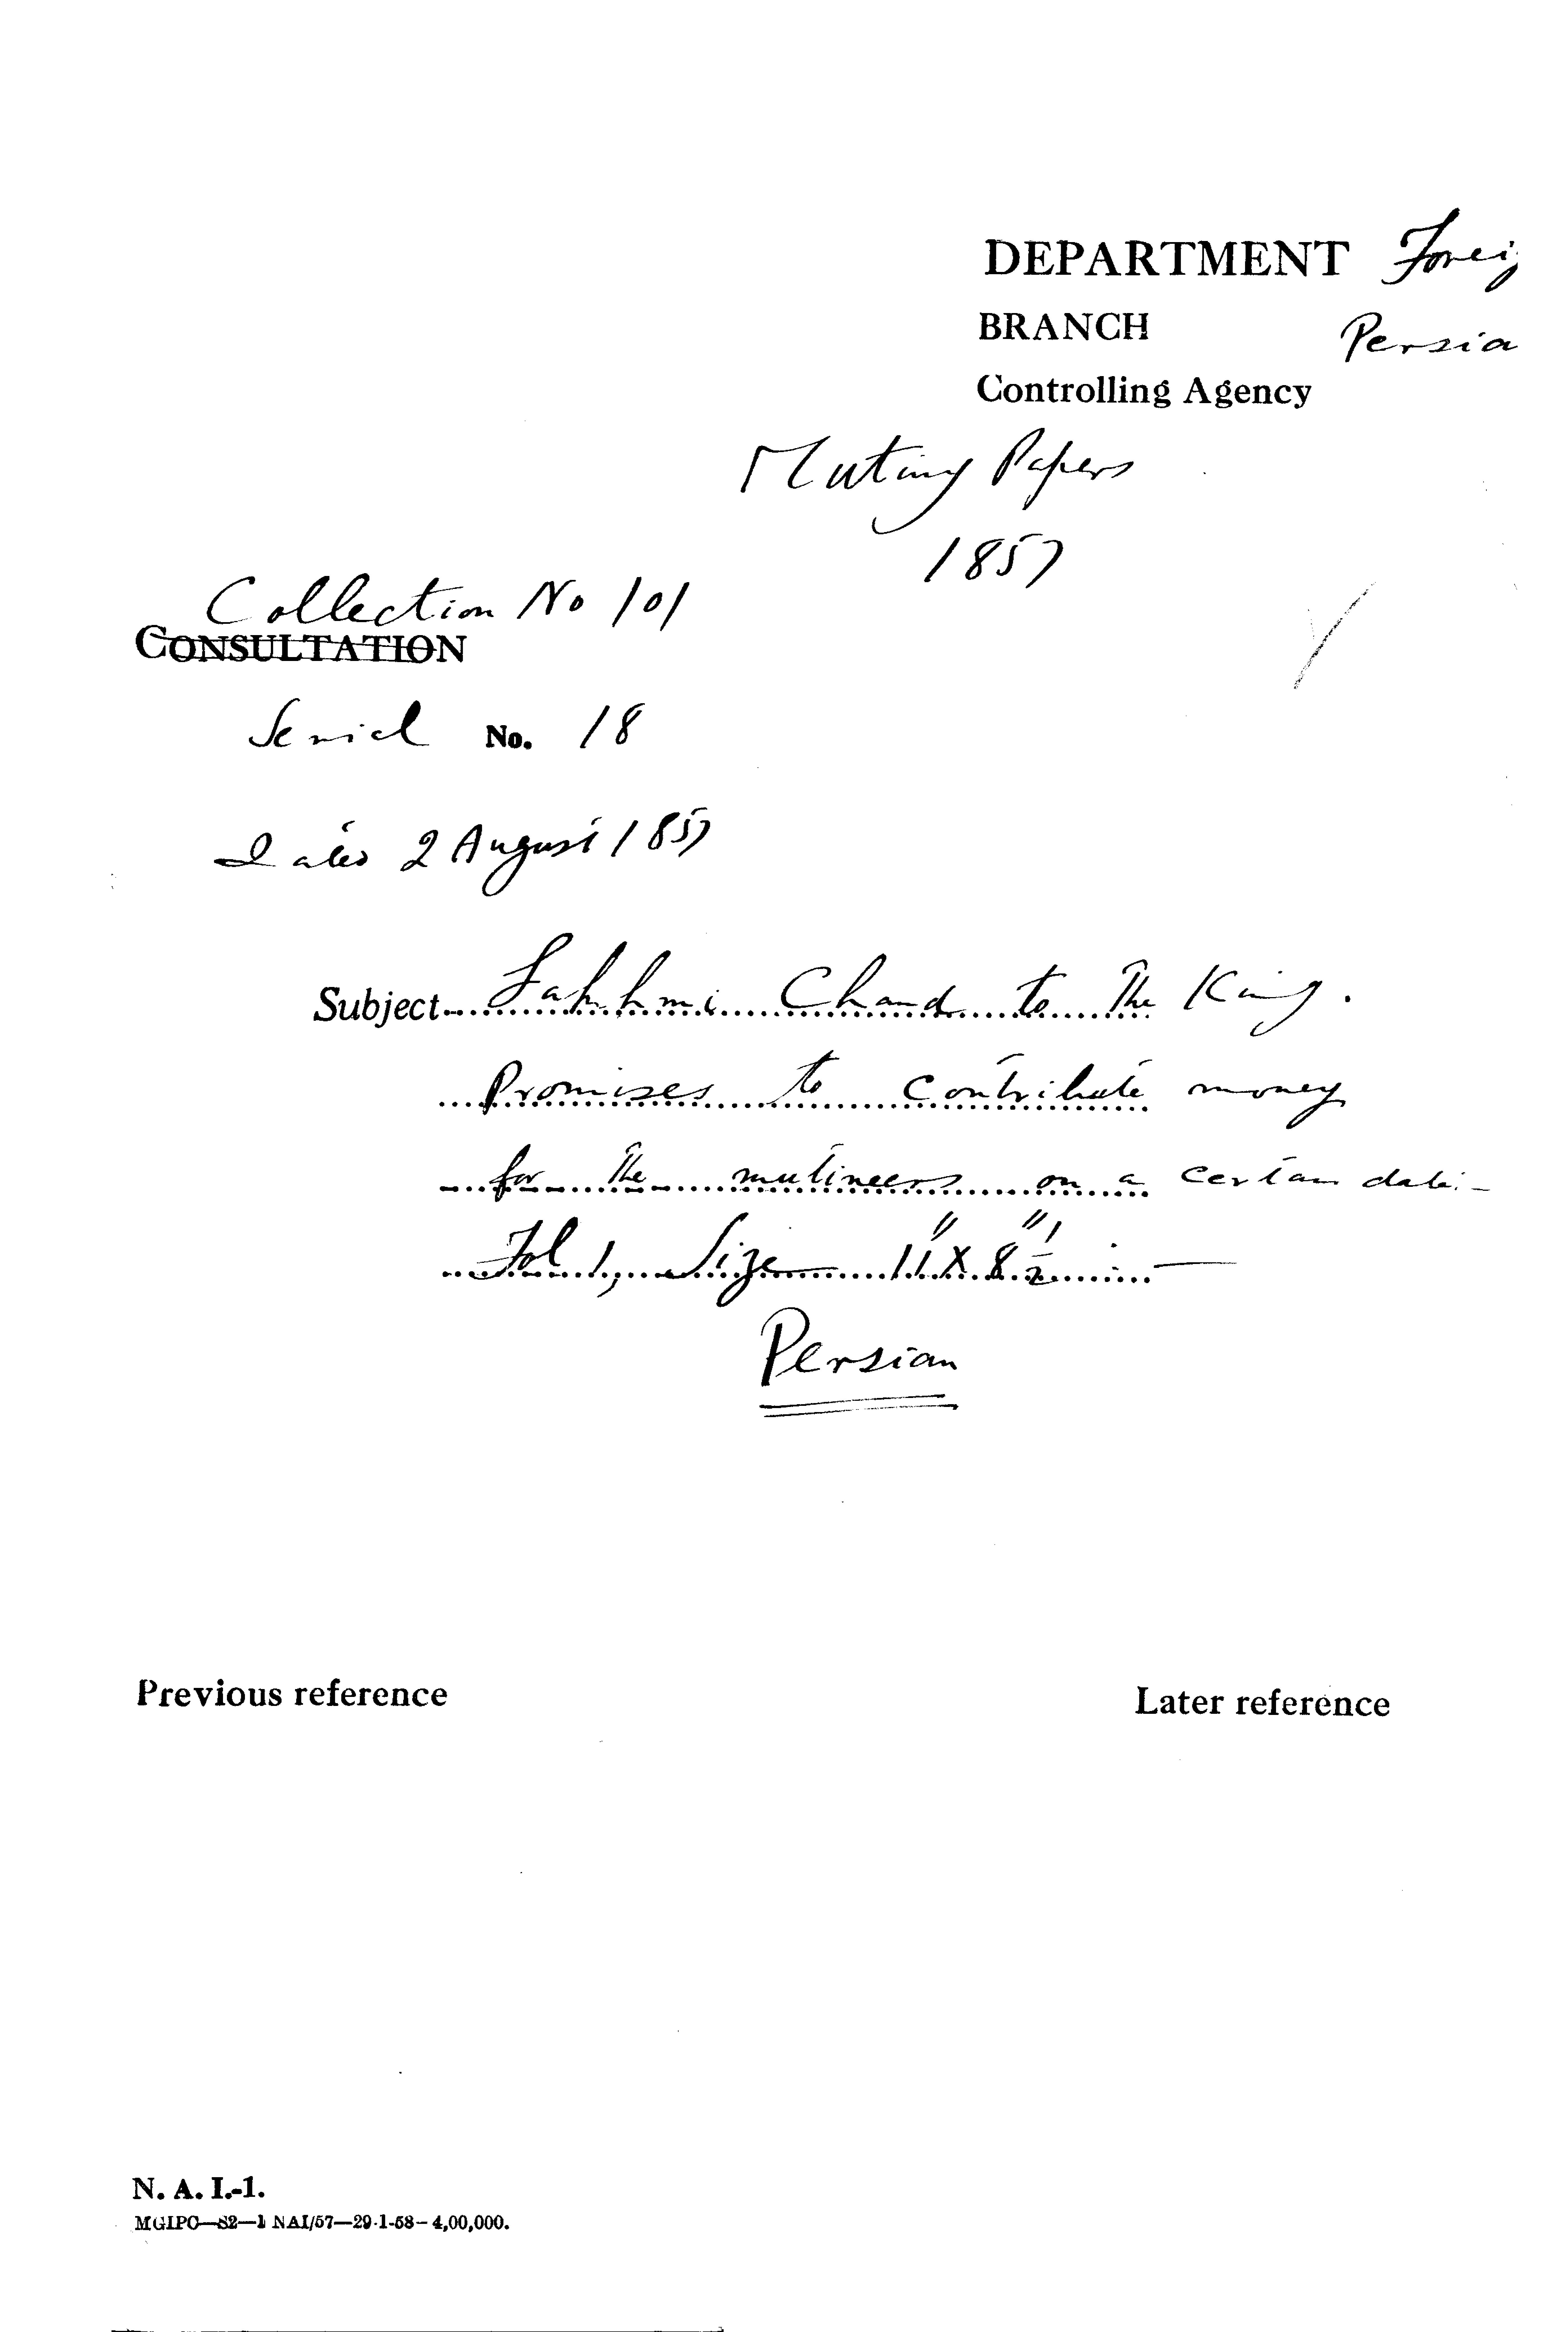 DEPARTMENT Foreig
BRANCH Persia
Controlling Agency
Mutiny Papers
1857
Collection No 101
CONSULTATION
Serial No. 18
Dated 2 August 1857
Subject Lakhmi Chand to the King.
Promises to contribute money
for the mutineers on a certain date:-
Fol 1, Size 11" X 8"½
Persian
Previous reference
Later reference
N. A. I.-1.
MGIPC—S2—1 NAI/57—29-1-58—4,00,000.